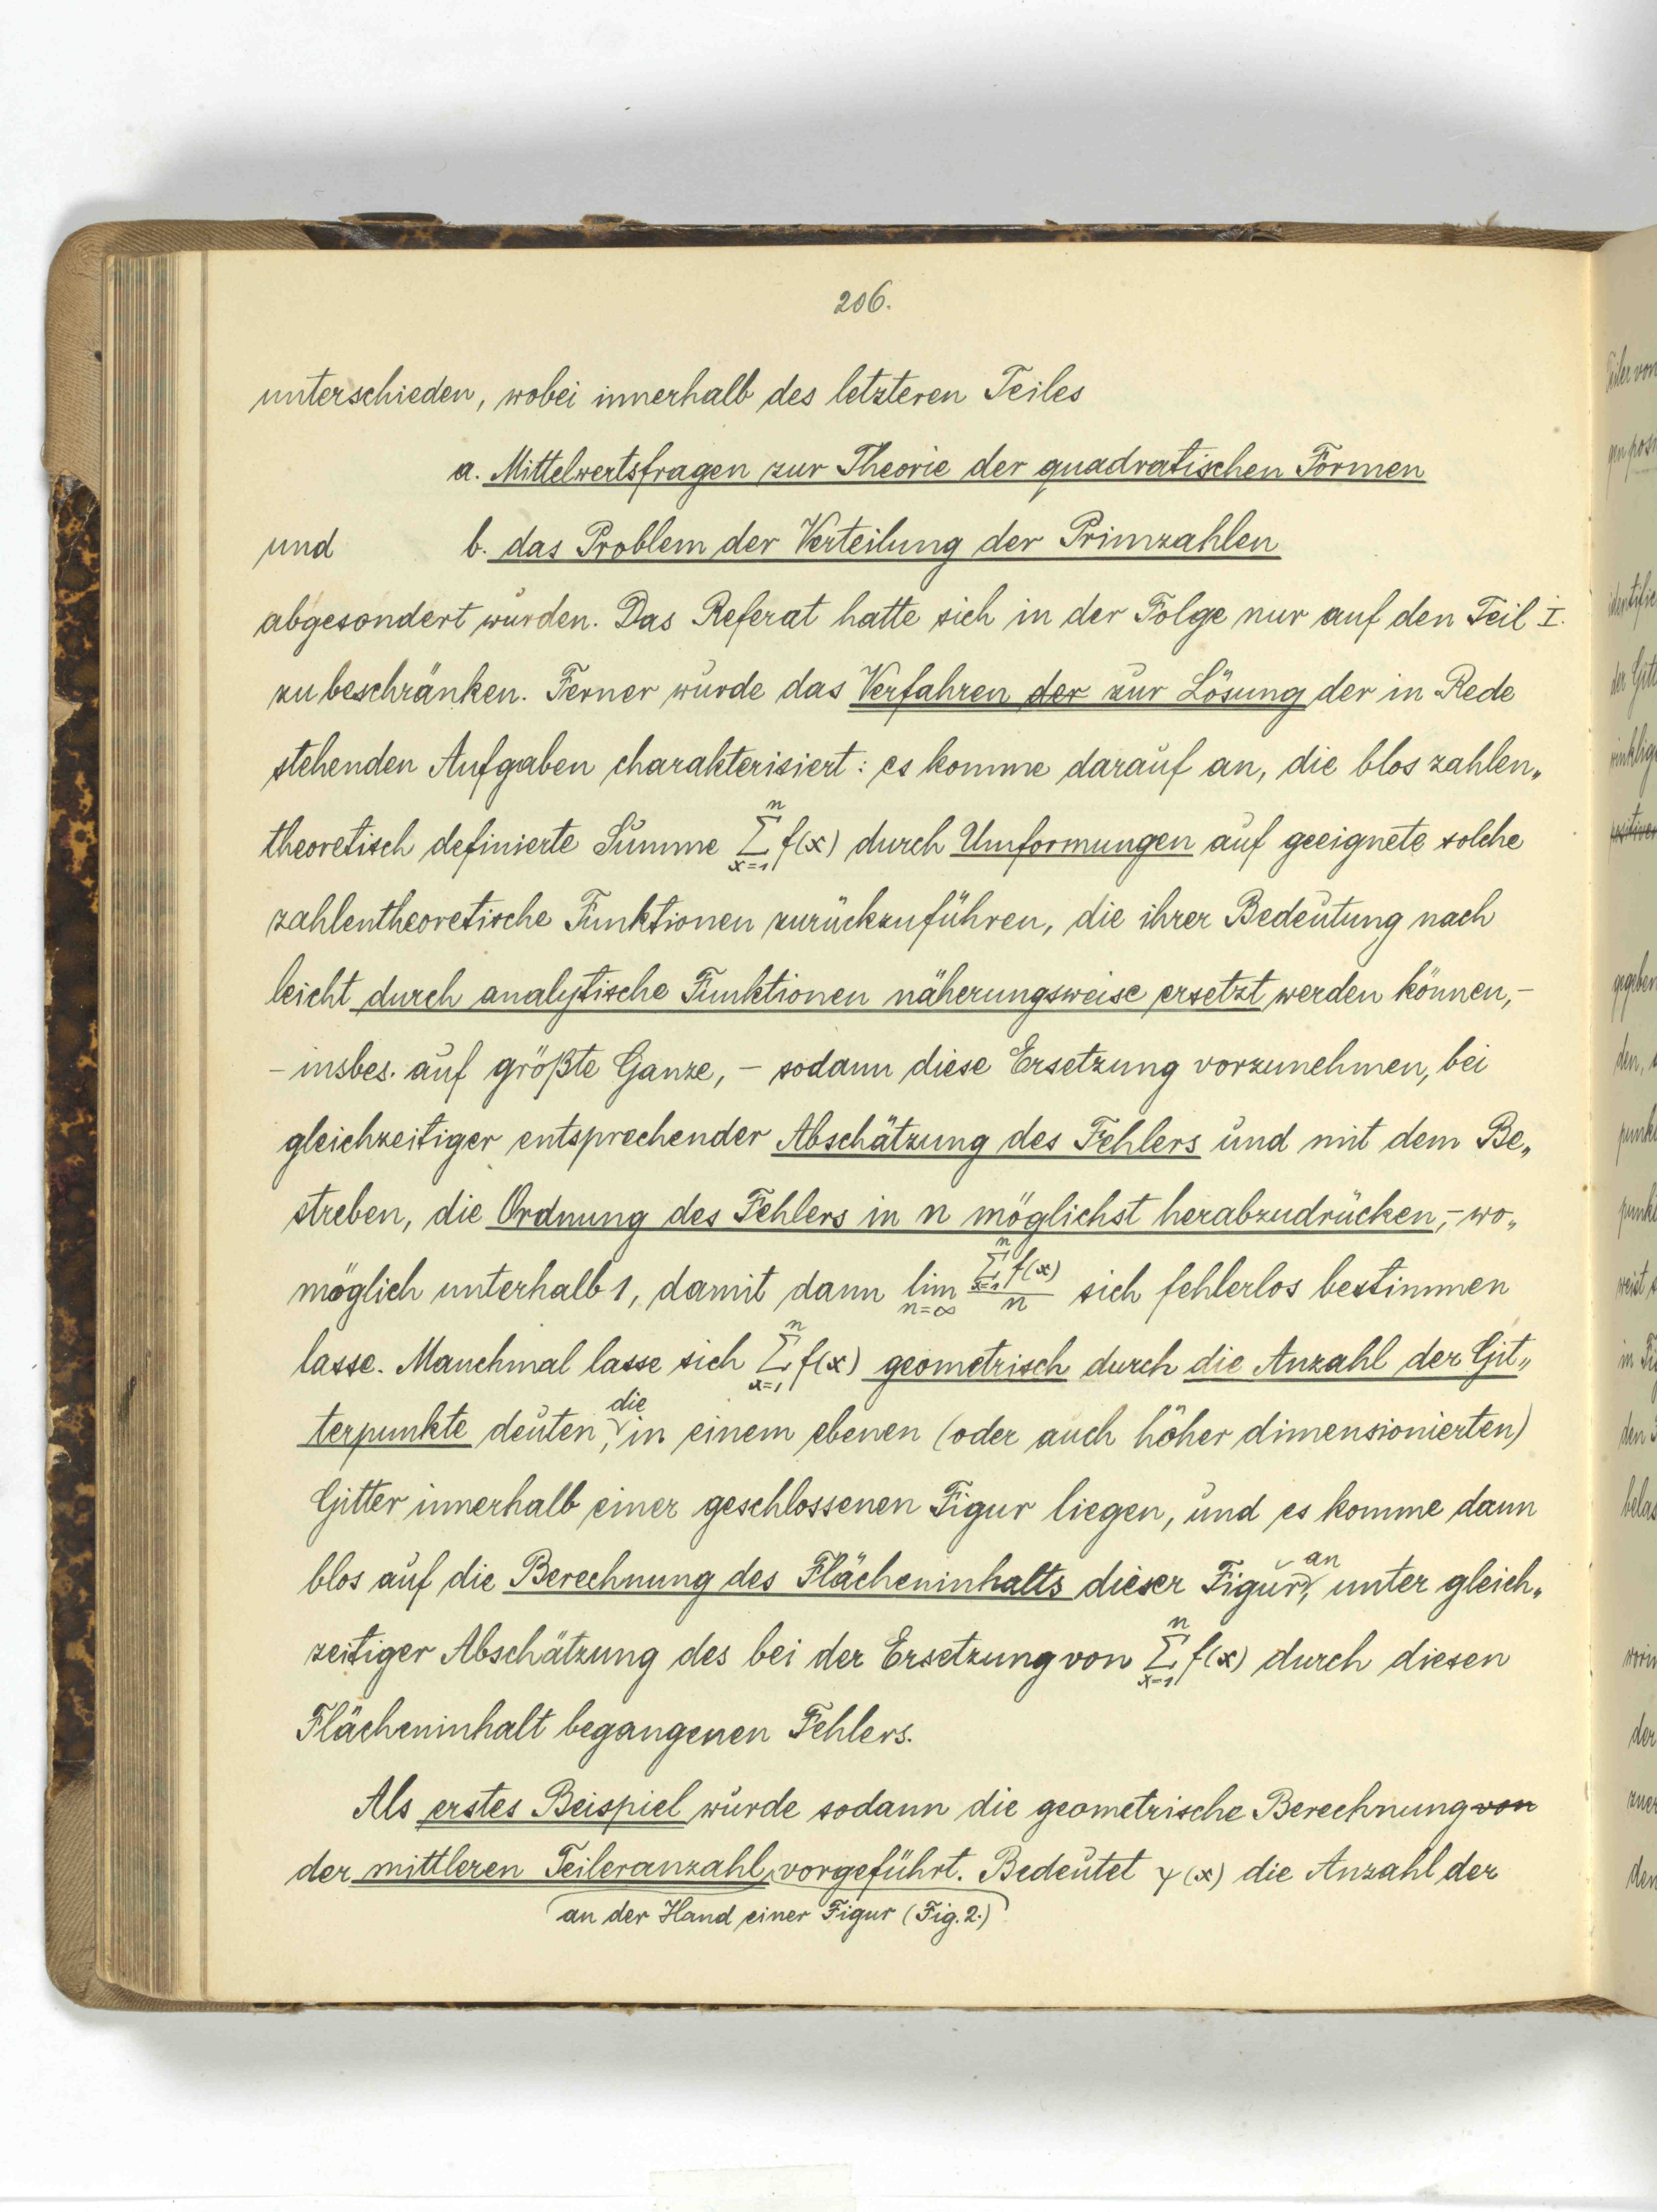 206.
unterschieden, wobei innerhalb des letzteren Teiles
a. Mittelwertsfragen zur Theorie der quadratischen Formen
und b. das Problem der Verteilung der Primzahlen
abgesondert wurden. Das Referat hatte sich in der Folge nur auf den Teil I.
zu beschränken. Ferner wurde das Verfahren der zur Lösung der in Rede
stehenden Aufgaben charakterisiert: es komme darauf an, die blos zahlen„
theoretisch definierte Summe ∑ⁿₓ₌₁ f(x) durch Umformungen auf geeignete solche
zahlentheoretische Funktionen zurückzuführen, die ihrer Bedeutung nach
leicht durch analytische Funktionen näherungsweise ersetzt werden können,–
– insbes. auf größte Ganze, – sodann diese Ersetzung vorzunehmen, bei
gleichzeitiger entsprechender Abschätzung des Fehlers und mit dem Be„
streben, die Ordnung des Fehlers in n möglichst herabzudrücken,– wo„
möglich unterhalb 1, damit dann lim n=∞ ∑ⁿₓ₌₁ f(x) / n sich fehlerlos bestimmen
lasse. Manchmal lasse sich ∑ⁿₓ₌₁ f(x) geometrisch durch die Anzahl der Git„
terpunkte deuten, die in einem ebenen (oder auch höher dimensionierten)
Gitter innerhalb einer geschlossenen Figur liegen, und es komme dann
blos auf die Berechnung des Flächeninhalts dieser Figur an, unter gleich„
zeitiger Abschätzung des bei der Ersetzung von ∑ⁿₓ₌₁ f(x) durch diesen
Flächeninhalt begangenen Fehlers.
Als erstes Beispiel wurde sodann die geometrische Berechnung von
der mittleren Teileranzahl vorgeführt. Bedeutet ψ(x) die Anzahl der
an der Hand einer Figur (Fig. 2.)